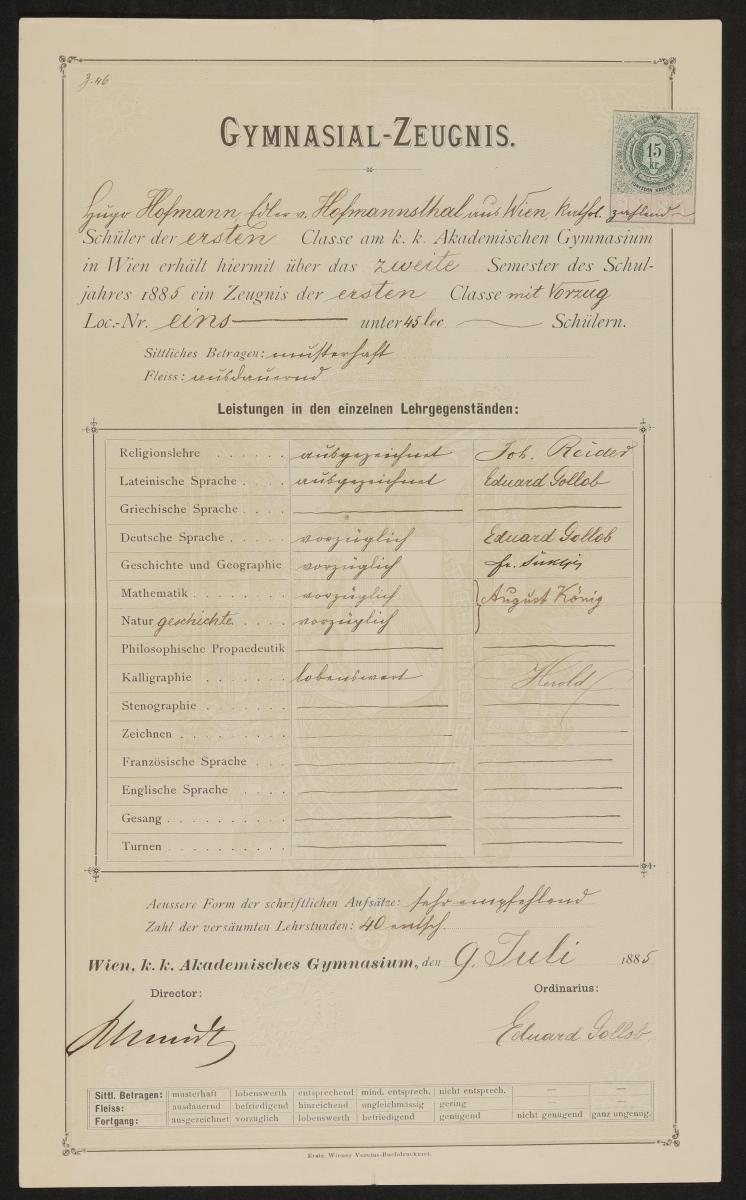 Z. 46
GYMNASIAL-ZEUGNIS.
15
kr.
FÜNFZEHN KREUZER
Hugo Hofmann, Edler v. Hofmannsthal aus Wien, kathol. zahlend
Schüler der ersten Classe am k. k. Akademischen Gymnasium
in Wien erhält hiermit über das zweite Semester des Schul-
jahres 1885 ein Zeugnis der ersten Classe mit Vorzug
Loc.-Nr. eins unter 45 loc. Schülern.
Sittliches Betragen: musterhaft
Fleiss: ausdauernd
Leistungen in den einzelnen Lehrgegenständen:
Religionslehre ausgezeichnet Joh.
Lateinische Sprache ausgezeichnet Eduard Gollob
Griechische Sprache
Deutsche Sprache vorzüglich Eduard Gollob
Geschichte und Geographie vorzüglich Fr. Šuklje
Mathematik vorzüglich August König
Naturgeschichte vorzüglich
Philosophische Propaedeutik
Kalligraphie lobenswert Herold
Stenographie
Zeichnen
Französische Sprache
Englische Sprache
Gesang
Turnen
Aeussere Form der schriftlichen Aufsätze: sehr empfehlend
Zahl der versäumten Lehrstunden: 40 entsch.
Wien, k. k. Akademisches Gymnasium, den 9. Juli 1885
Director: Ordinarius:
Schmidt Eduard Gollob
Sittl. Betragen: musterhaft lobenswerth entsprechend mind. entsprech. nicht entsprech. — —
Fleiss: ausdauernd befriedigend hinreichend ungleichmässig gering — —
Fortgang: ausgezeichnet vorzüglich lobenswerth befriedigend genügend nicht genügend ganz ungenüg.
Erste Wiener Vereins-Buchdruckerei.